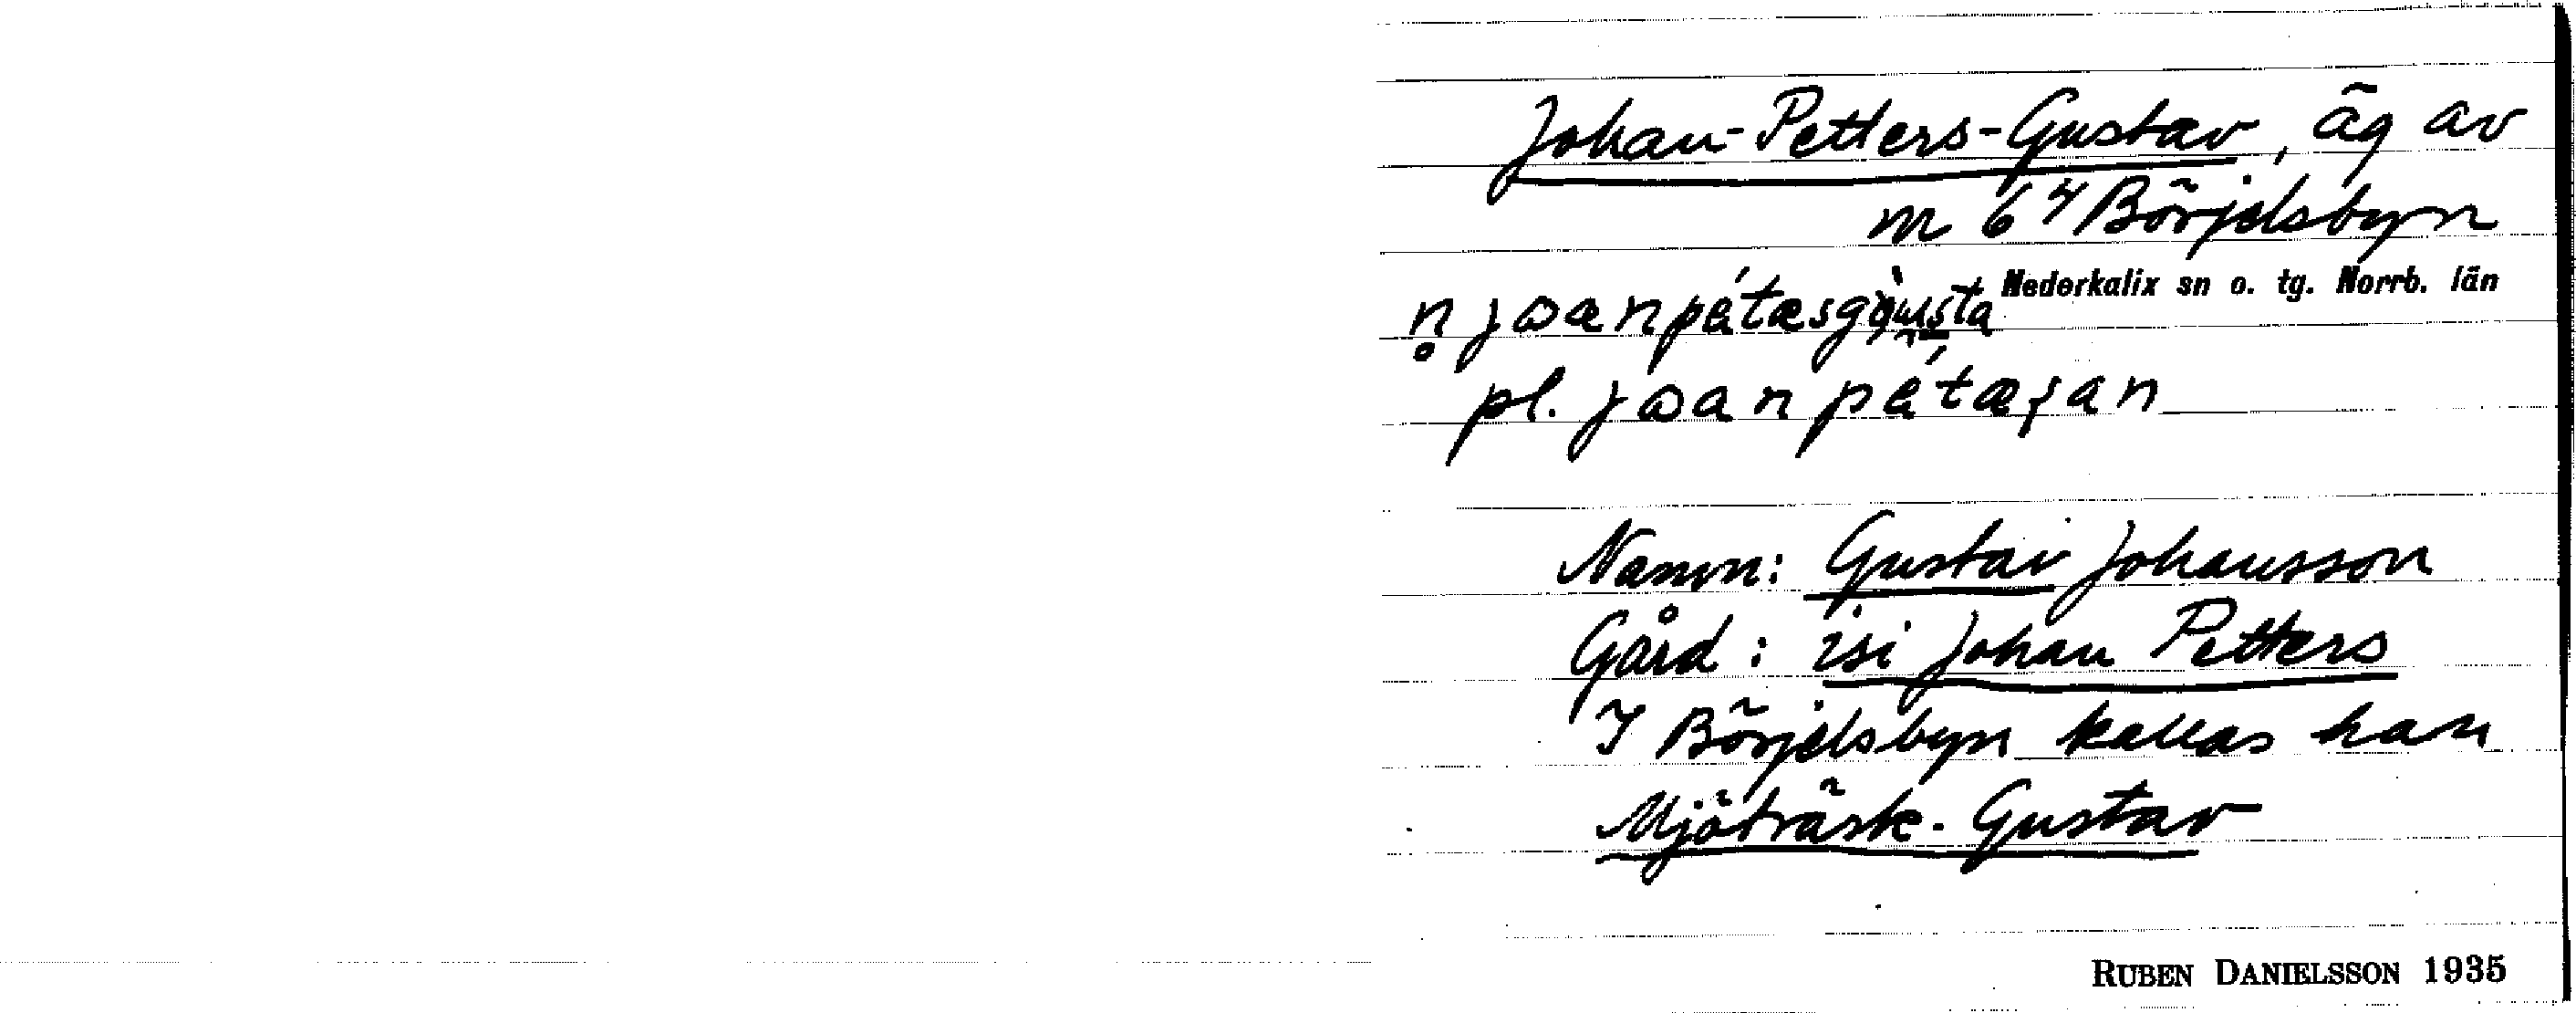 Johan-Petters-Gustav, äg av
m 6⁴ Börjelsbyn
Nederkalix sn o. tg. Norrb. län
pl. jɷanpétæʂan
Namn: Gustav Johansson
Gård: isi Johan Petters
I Börjelsbyn kallas han
Mjöträsk-Gustav
RUBEN DANIELSSON 1935